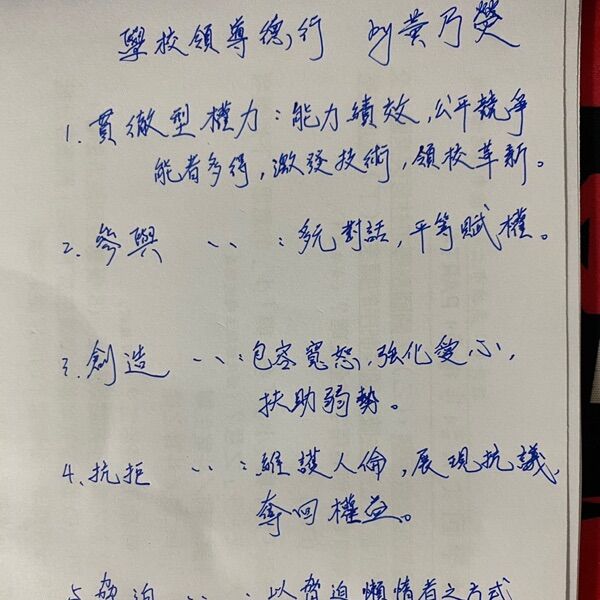 學校領導德行 by 黃乃熒
1. 貫徹型權力：能力績效，公平競爭
能者多得，激發技術，領校革新。
2. 參與 〃 ：多元對話，平等賦權。
3. 創造 〃：包容寬恕，強化愛心，
扶助弱勢。
4. 抗拒 〃 ：維護人倫，展現抗議，
奪回權益。
5. 脅迫 〃 ：以脅迫懶惰者之方式